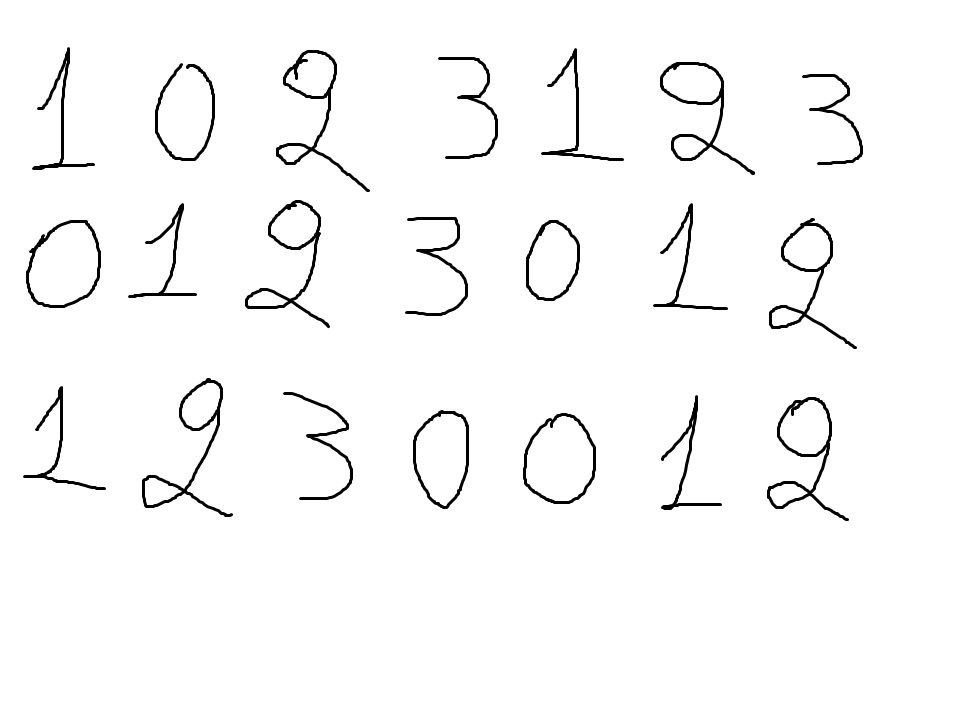 1 0 2 3 1 2 3
0 1 2 3 0 1 2
1 2 3 0 0 1 2